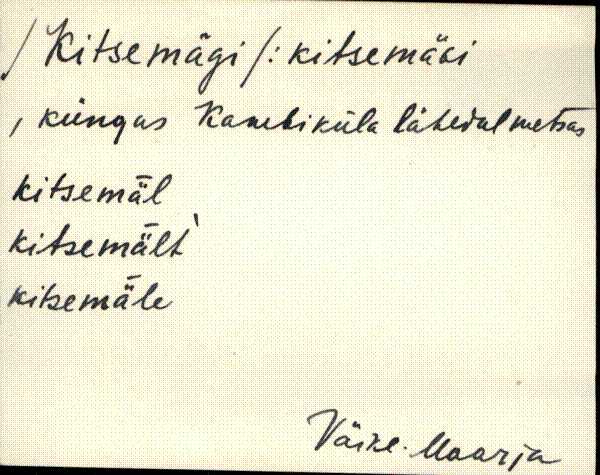 /Kitsemägi/: kitsemäɢi
, küngas Kambiküla lähedal metsas
kitsemä̆l
kitsemä̆lt`
kitsemä̆le
Väike-Maarja